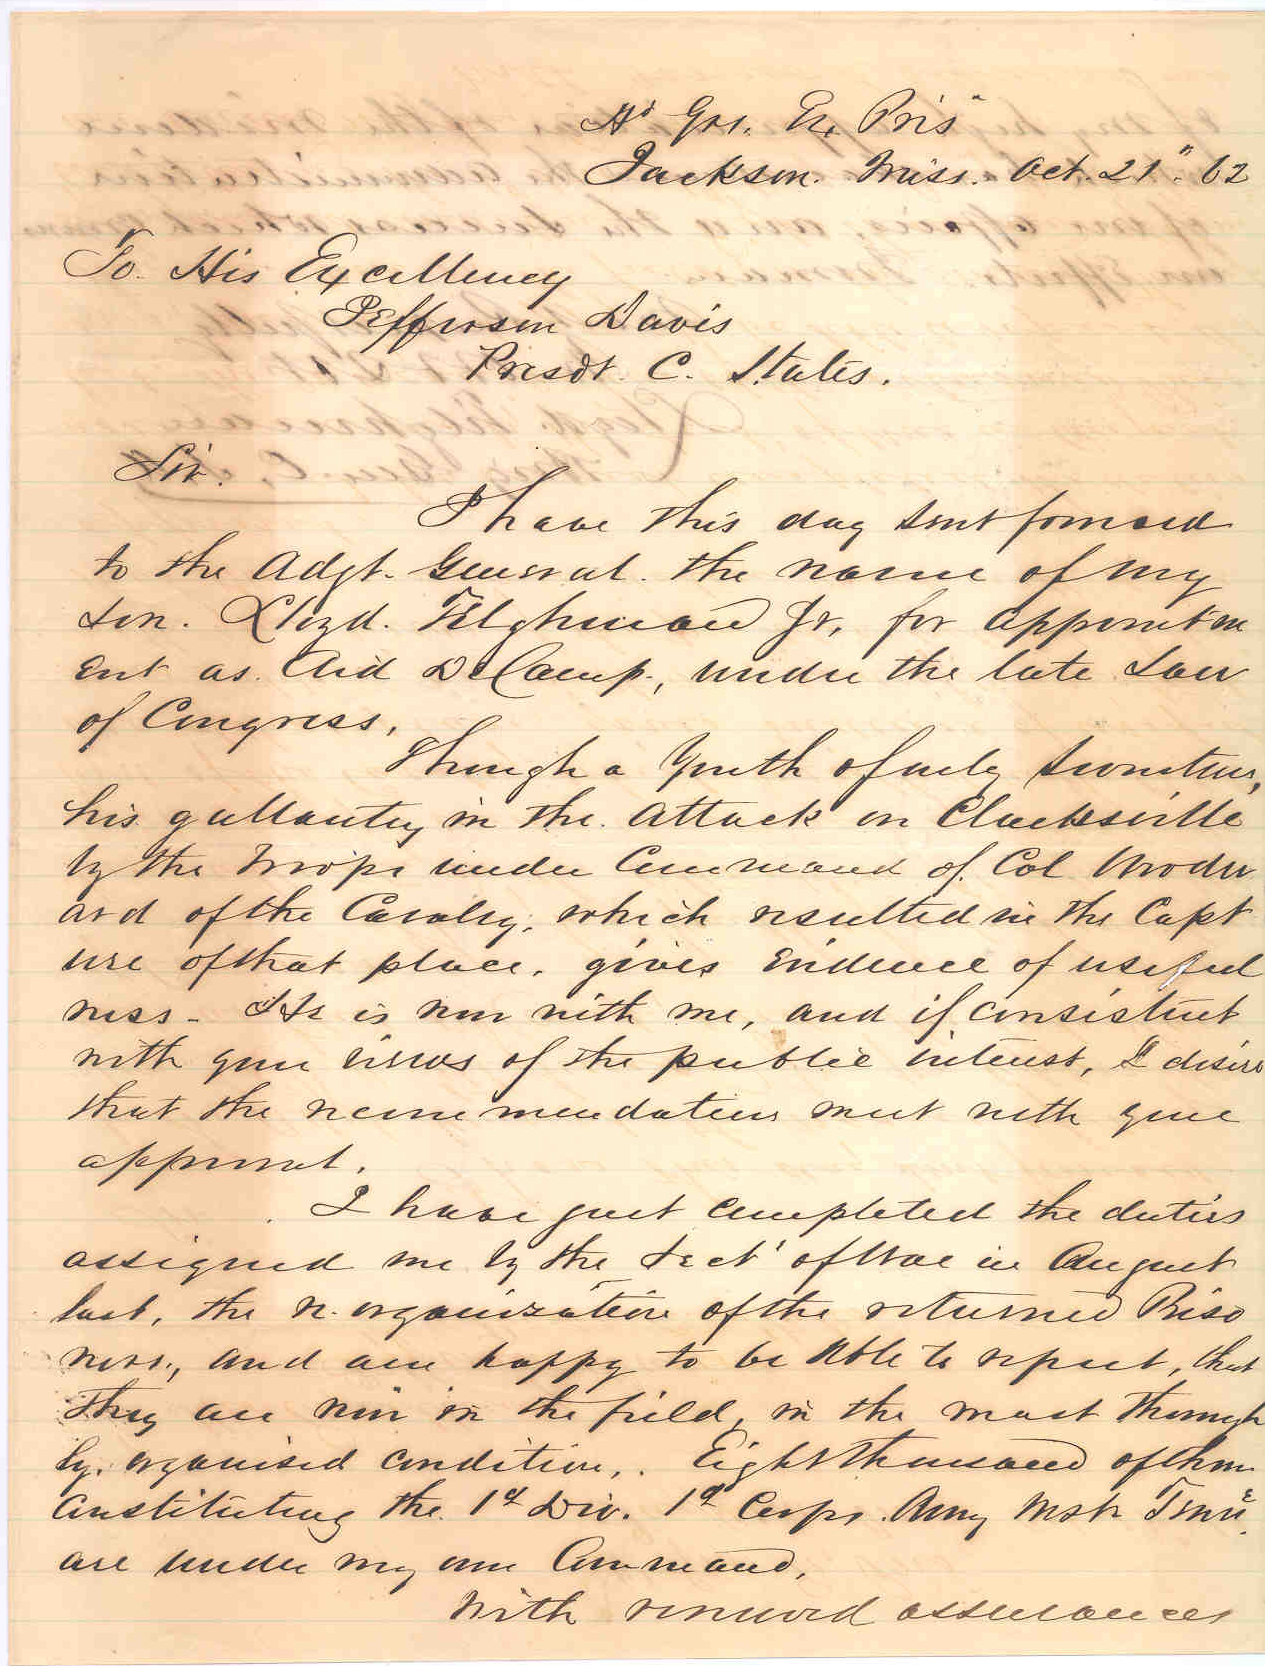 Hd Qrs. Ex. Pris
Jackson. Miss. Oct. 21" 62
To. His Excellency
Jefferson Davis
Presdt. C. States.
Sir.
I have this day sent forward
to the Adgt. General. the name of my
son. Lloyd. Tilghman Jr. for appointm
ent as. Aid De Camp., under the late Law
of Congress.
Though a Youth of only
his gallantry in the. attack on Clarksville
by the troops under Command of. Col Woodw
ard of the Cavalry, which resulted in the Capt
ure of that place. gives Evidence of useful
ness - He is now with me, and if consistent
with your views of the public interest, I desire
that the recommendation meet with your
approval.
I have just completed the duties
assigned me by the Sect' of War in August
last, the re. organization of the returned Priso
ners., and am happy to be able to report, that
they are now in the field, in the most thorough
ly. organised condition,. Eight thousand of them
Constituting the. 1st Div. 1st Corps. Army West Tenn.
are under my own Command.
With renewed assurances